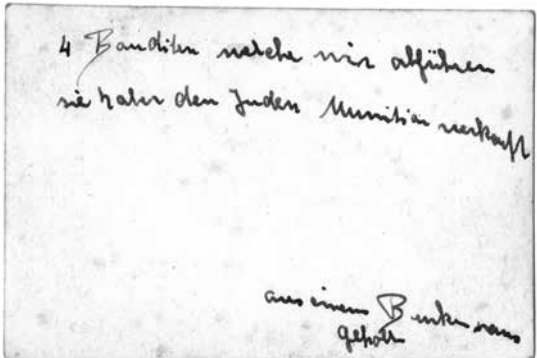 4 Banditen welche wir abführen
sie haben den Juden Munition verkauft
aus einem Bunker raus
geholt